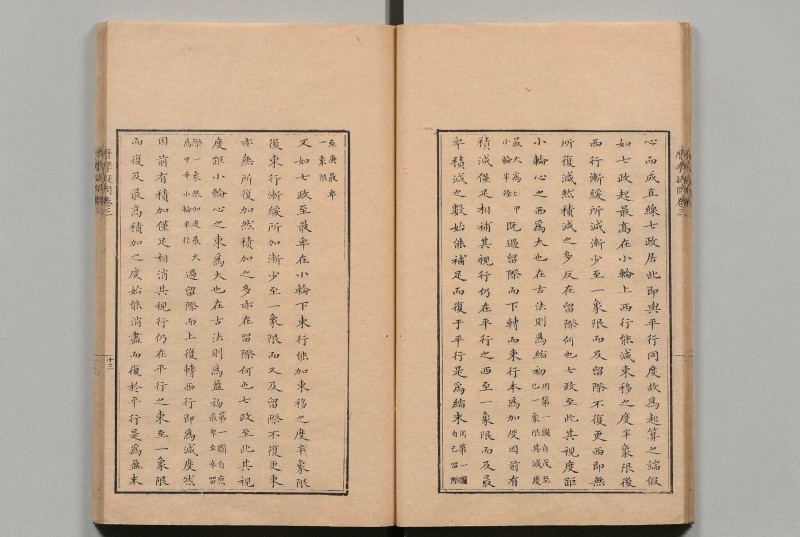 心而成直線七政居此即與平行同度故為起算之端假
如七政起最高在小輪上西行能減東移之度半象限後
西行漸緩所減漸少至一象限而及留際不復更西即無
所復減然積減之多反在留際何也七政至此其視度距
小輪心之西為大也在古法則為縮初用第一圖自戊至己一象限其減度
最大為七甲小輪半徑既過留際而下轉而東行本為加度因前有
積減僅足相補其視行仍在平行之西至一象限而及最
卑積減之數始能補足而復于平行是為縮末用第一圖自己留際
至庚最卑一象限
又如七政至最卑在小輪下東行能加東移之度半象限
後東行漸緩所加漸少至一象限而又及留際不復更東
亦無所復加然積加之多亦在留際何也七政至此其視
度距小輪心之東為大也在古法則為盈初第一圖自庚最卑至辛留
際一象限加度最大為甲辛小輪半徑過留際而上復轉西行即為減度然
因前有積加僅足相消其視行仍在平行之東至一象限
而復及最高積加之度始能消盡而復於平行是為盈末
曆學疑問卷三
十三